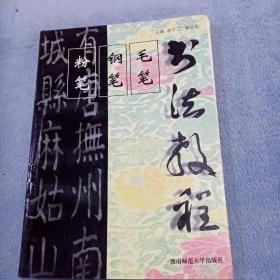 书法教程
毛笔
钢笔
粉笔
有唐撫州南
城縣麻姑山
西南师范大学出版社